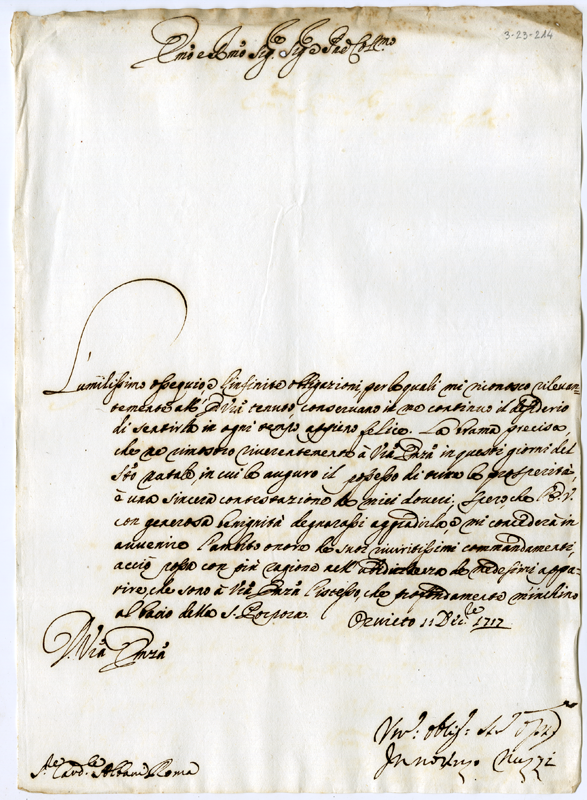 3-23-214
Emõ e Rmõ Sig.r Sig.r e Prõe Col.mo
L'umilissimo ossequio, e l'infinite obligazioni, per le quali mi riconosco rilevan-
temente all' E. Vrã tenuto, conservano in me continuo il desiderio
di sentirla in ogni tempo appieno felice. La brama precisa
che ne rimostro riverentemente à Vrã Emza in questi giorni del
Sto natale in cui le auguro il possesso di tutte le prosperità,
è una sincera contestazione de miei doveri. Spero, che l'E. V.
con generosa benignità degnarassi aggradirla, e mi concederà in
avvenire l'ambito onore de suoi riveritissimi commandamenti,
acciò possa con più ragione nell' ubbidienza de medesimi appa-
rire, che sono à Vrã Emza l'istesso, che profondamente m'inchino
al bacio della S. Porpora. Orvieto 11 Dec.bre 1717
D. Vrã Emza
Um.o Oblig.o
Nuzzi
S.re Card.le Albani Roma